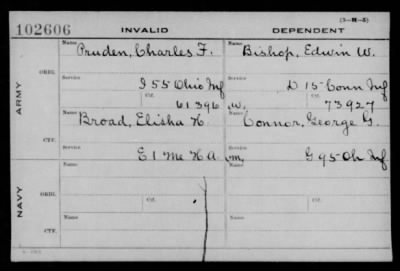 (3-H-5)
102606 INVALID DEPENDENT
Name Pruden, Charles F. Name Bishop, Edwin W.
ARMY
ORIG.
Service I 55 Ohio Inf Service D 15 Conn Inf
Ctf. 61396 W. Ctf. 73927
Name Broad, Elisha H. Name Connor, George G.
CTF.
Service E 1 Me H A Service m. G 95 Oh Inf
NAVY
Name Name
ORIG.
Service Ctf. Service Ctf.
Name Name
CTF.
Service Service